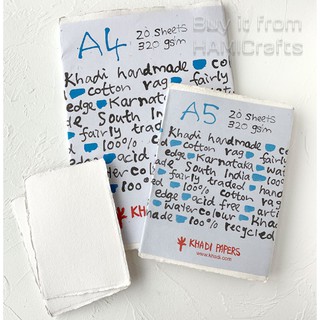 Buy it from
HAMICrafts
A4
20 sheets
320 gsm
Khadi handmade co
cotton rag fairly
edge Karnataka
ade South India
fairly traded
100%
acid free
A5
20 sheets
320 gsm
Khadi handmade
cotton rag fairly
edge Karnataka
ade South India 100%
fairly traded han
100% cotton rag
acid free arti
watercolour Khad
ade 100% recycled
KHADI PAPERS
www.khadi.com
KHA